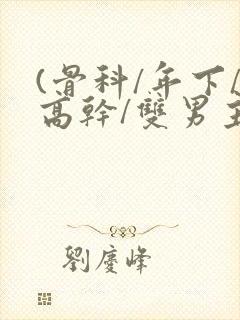 (骨科/年下/
高幹/雙男主
劉慶峰